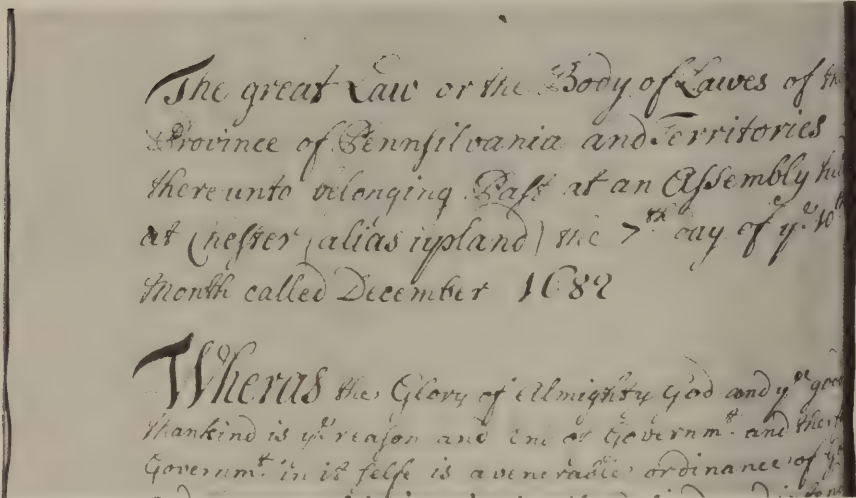 The great Law or the Body of Lawes of the
Province of Pennsilvania and Territories
thereunto belonging Past at an Assembly held
at Chester (alias upland) the 7th day of ye 10th
Month called December 1682
Wheras the Glory of Almighty God and ye good
Mankind is ye reason and end of Governmt and
Governmt in it selfe is a venerable ordinance of